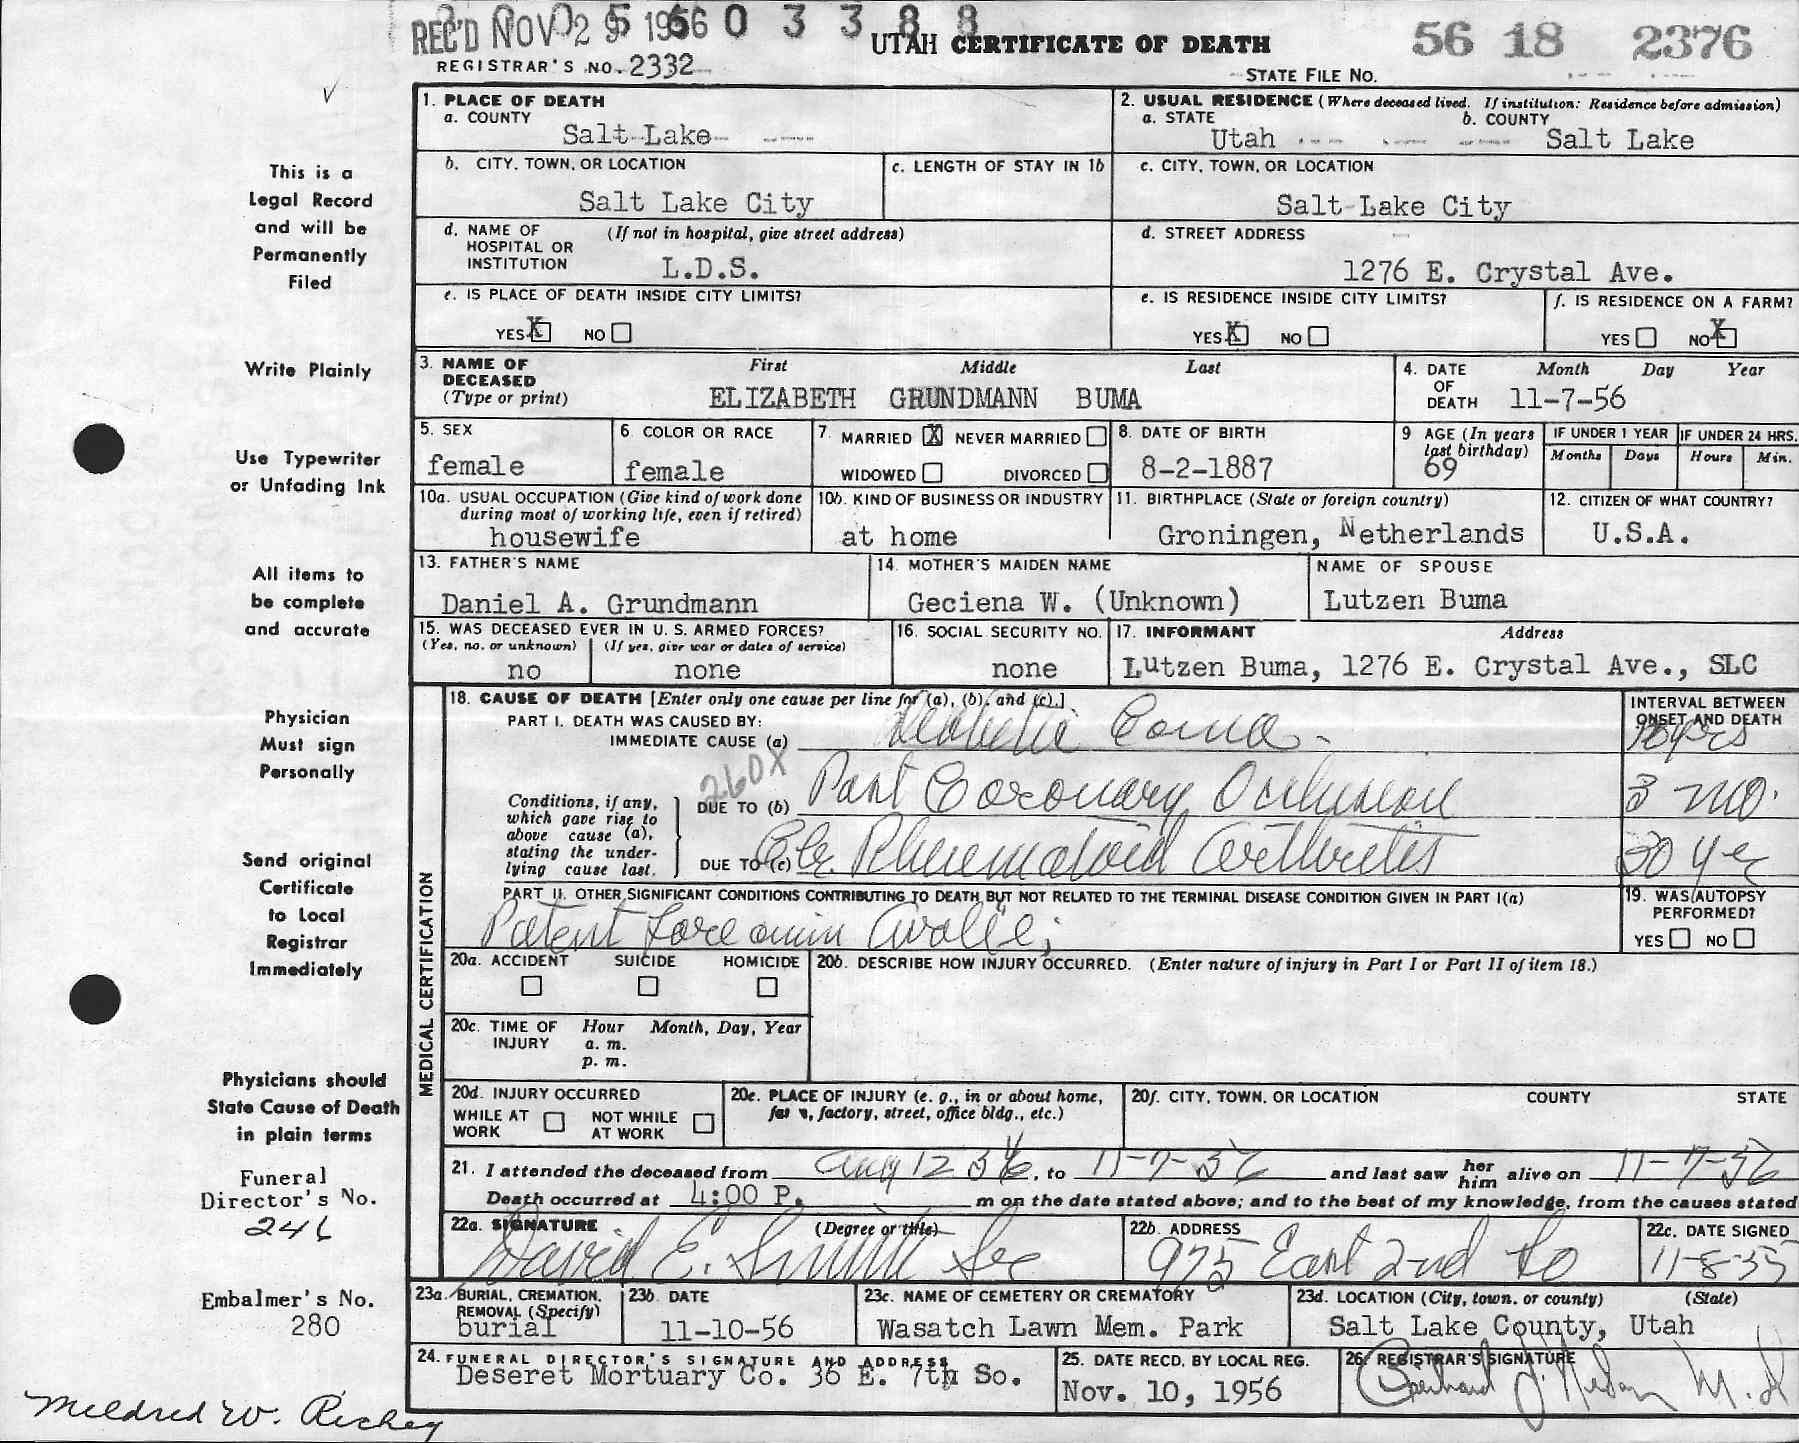 REC'D NOV 29 1956 0 3 3 8 8
UTAH CERTIFICATE OF DEATH
56 18 2376
REGISTRAR'S NO. 2332
STATE FILE NO.
1. PLACE OF DEATH
a. COUNTY
Salt Lake
2. USUAL RESIDENCE (Where deceased lived. If institution: Residence before admission)
a. STATE b. COUNTY
Utah Salt Lake
b. CITY, TOWN, OR LOCATION
Salt Lake City
c. LENGTH OF STAY IN 1b
c. CITY, TOWN, OR LOCATION
Salt Lake City
d. NAME OF HOSPITAL OR INSTITUTION (If not in hospital, give street address)
L.D.S.
d. STREET ADDRESS
1276 E. Crystal Ave.
e. IS PLACE OF DEATH INSIDE CITY LIMITS?
YES X NO
e. IS RESIDENCE INSIDE CITY LIMITS?
YES X NO
f. IS RESIDENCE ON A FARM?
YES NO X
3. NAME OF DECEASED (Type or print)
First Middle Last
ELIZABETH GRUNDMANN BUMA
4. DATE OF DEATH
Month Day Year
11-7-56
5. SEX
female
6. COLOR OR RACE
female
7. MARRIED X NEVER MARRIED
WIDOWED DIVORCED
8. DATE OF BIRTH
8-2-1887
9 AGE (In years last birthday)
69
IF UNDER 1 YEAR
Months Days
IF UNDER 24 HRS.
Hours Min.
10a. USUAL OCCUPATION (Give kind of work done during most of working life, even if retired)
housewife
10b. KIND OF BUSINESS OR INDUSTRY
at home
11. BIRTHPLACE (State or foreign country)
Groningen, Netherlands
12. CITIZEN OF WHAT COUNTRY?
U.S.A.
13. FATHER'S NAME
Daniel A. Grundmann
14. MOTHER'S MAIDEN NAME
Geciena W. (Unknown)
NAME OF SPOUSE
Lutzen Buma
15. WAS DECEASED EVER IN U. S. ARMED FORCES?
(Yes, no, or unknown) (If yes, give war or dates of service)
no none
16. SOCIAL SECURITY NO.
none
17. INFORMANT Address
Lutzen Buma, 1276 E. Crystal Ave., SLC
MEDICAL CERTIFICATION
18. CAUSE OF DEATH [Enter only one cause per line for (a), (b), and (c).]
PART I. DEATH WAS CAUSED BY:
IMMEDIATE CAUSE (a) Diabetic Coma
INTERVAL BETWEEN ONSET AND DEATH
260X
Conditions, if any, which gave rise to above cause (a), stating the underlying cause last.
DUE TO (b) Past Coronary Occlusion 3 mo.
DUE TO (c) Chr. Rheumatoid Arthritis 20 yr
PART II. OTHER SIGNIFICANT CONDITIONS CONTRIBUTING TO DEATH BUT NOT RELATED TO THE TERMINAL DISEASE CONDITION GIVEN IN PART I(a)
Patent Foramin Ovalie;
19. WAS AUTOPSY PERFORMED?
YES NO
20a. ACCIDENT SUICIDE HOMICIDE
20b. DESCRIBE HOW INJURY OCCURRED. (Enter nature of injury in Part I or Part II of item 18.)
20c. TIME OF INJURY Hour Month, Day, Year
a. m.
p. m.
20d. INJURY OCCURRED
WHILE AT WORK NOT WHILE AT WORK
20e. PLACE OF INJURY (e. g., in or about home, farm, factory, street, office bldg., etc.)
20f. CITY, TOWN, OR LOCATION COUNTY STATE
21. I attended the deceased from Aug 12 56, to 11-7-56 and last saw her him alive on 11-7-56
Death occurred at 4:00 P. m on the date stated above; and to the best of my knowledge, from the causes stated
22a. SIGNATURE (Degree or title)
David E. Smith
22b. ADDRESS
975 East 2nd So
22c. DATE SIGNED
11-8-55
23a. BURIAL, CREMATION, REMOVAL (Specify)
burial
23b. DATE
11-10-56
23c. NAME OF CEMETERY OR CREMATORY
Wasatch Lawn Mem. Park
23d. LOCATION (City, town, or county) (State)
Salt Lake County, Utah
24. FUNERAL DIRECTOR'S SIGNATURE AND ADDRESS
Deseret Mortuary Co. 36 E. 7th So.
25. DATE RECD. BY LOCAL REG.
Nov. 10, 1956
26. REGISTRAR'S SIGNATURE
This is a
Legal Record
and will be
Permanently
Filed
Write Plainly
Use Typewriter
or Unfading Ink
All items to
be complete
and accurate
Physician
Must sign
Personally
Send original
Certificate
to Local
Registrar
Immediately
Physicians should
State Cause of Death
in plain terms
Funeral
Director's No.
246
Embalmer's No.
280
Mildred W. Richey